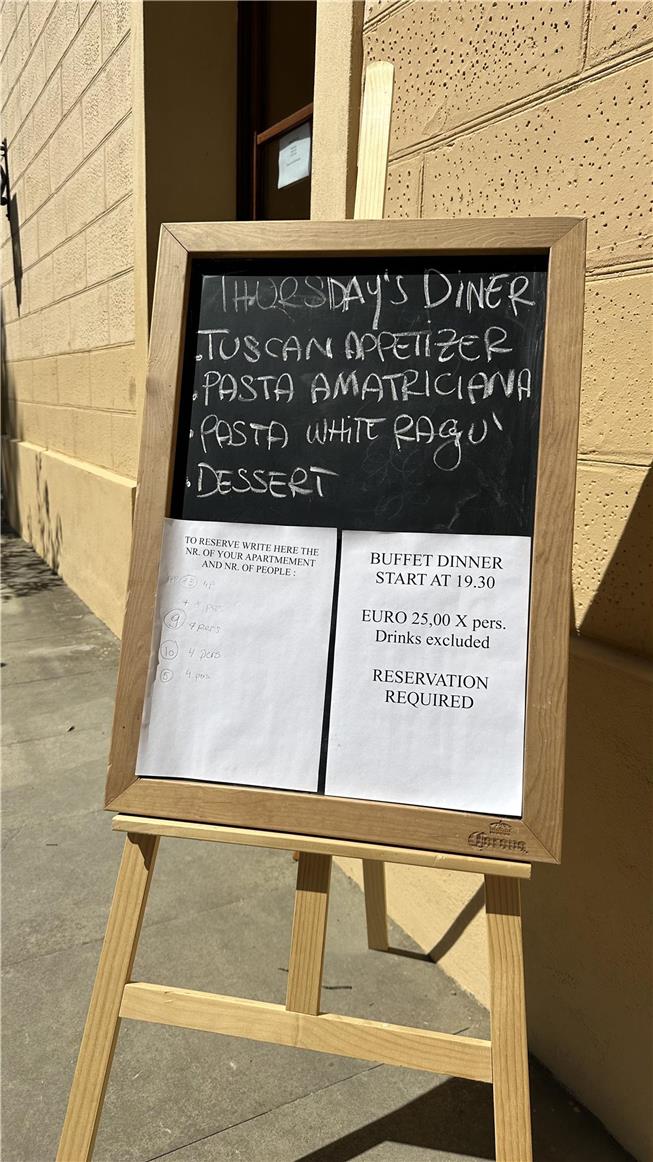 THURSDAY'S DINER
.TUSCAN APPETIZER
.PASTA AMATRICIANA
.PASTA WHITE RAGU'
.DESSERT
TO RESERVE WRITE HERE THE
NR. OF YOUR APARTMEMENT
AND NR. OF PEOPLE :
4 pers
9 4 pers
10 4 pers
5 4 pers
BUFFET DINNER
START AT 19.30
EURO 25,00 X pers.
Drinks excluded
RESERVATION
REQUIRED
Corona